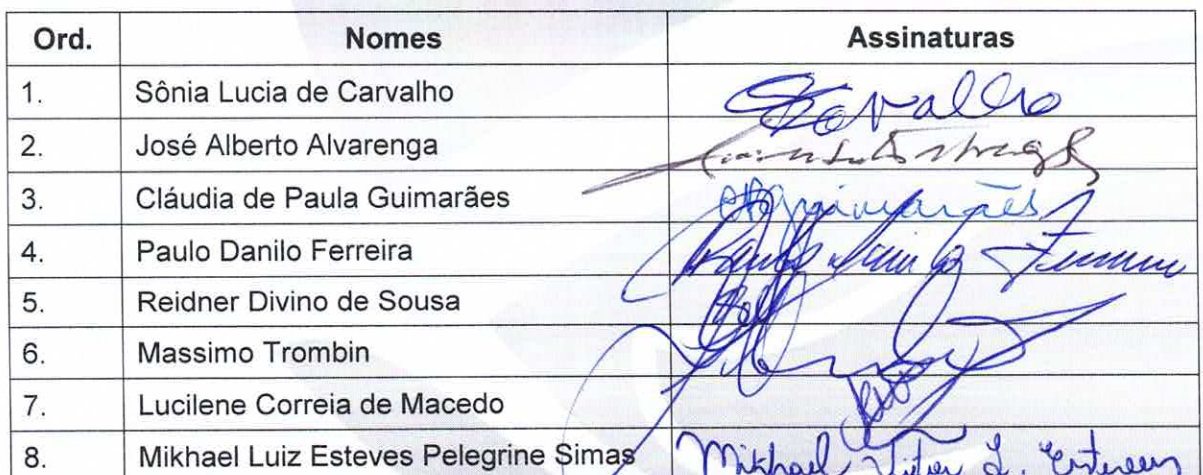 Ord. Nomes Assinaturas
1. Sônia Lucia de Carvalho Carvalho
2. José Alberto Alvarenga
3. Cláudia de Paula Guimarães Guimarães
4. Paulo Danilo Ferreira Paulo Danilo Ferreira
5. Reidner Divino de Sousa
6. Massimo Trombin
7. Lucilene Correia de Macedo
8. Mikhael Luiz Esteves Pelegrine Simas Mikhael